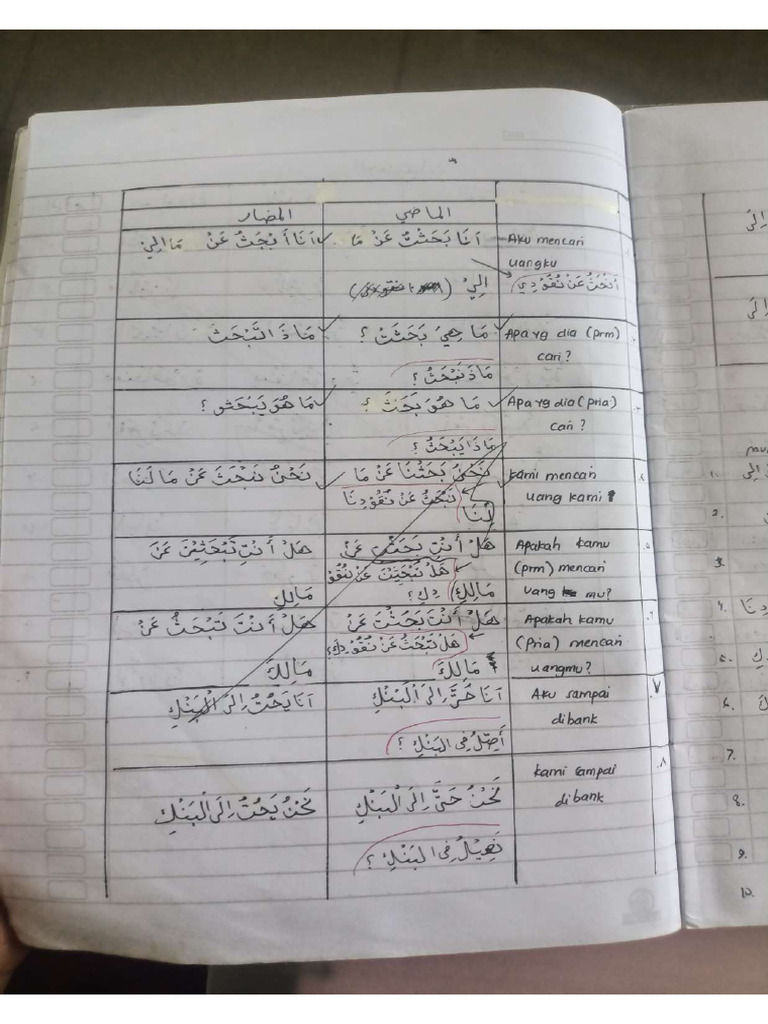 المضار الماضي
Aku mencari أنَا بَحَثْتُ عَنْ مَا أنَا أَبْحَثُ عَنْ مَالِيْ
uangku
أبْحَثُ عَنْ نُقُوْدِي
اَلِيْ
Apa yg dia (prm) مَا هِيَ بَحَثَتْ ؟ مَاذَا تَبْحَثُ
cari ?
مَاذَ تَبْحَثُ ؟
Apa yg dia (pria) مَا هُوَ بَحَثَ ؟ مَا هُوَ يَبْحَثُ ؟
cari ?
مَاذَا يَبْحَثُ ؟
Kami mencari نَحْنُ بَحَثْنَا عَنْ مَا نَحْنُ نَبْحَثُ عَنْ مَا لَنَا
uang kami
نَبْحَثُ عَنْ نُقُوْدِنَا
لَنَا
٥. Apakah kamu هَلْ أَنْتِ بَحَثْتِ عَنْ هَلْ أَنْتِ تَبْحَثِيْنَ عَنَ
(prm) mencari هَلْ تَبْحَثِيْنَ عَنْ نُقُوْ
uang mu? دِكِ ؟ مَالِكِ مَالِكِ
٦. Apakah kamu هَلْ أَنْتَ بَحَثْتَ عَنْ هَلْ أَنْتَ تَبْحَثُ عَنْ
(Pria) mencari هَلْ تَبْحَثُ عَنْ نُقُوْدِكَ؟
uangmu? مَالِكَ مَالِكَ
٧. Aku sampai أنَا حَتَّ إِلَى الْبَنْكِ أنَا يَحُتُ إِلَى الْبَنْكِ
dibank
أَصِلُ فِى الْبَنْكِ ؟
٨. kami sampai
dibank نَحْنُ حَتَّ إِلَى الْبَنْكِ نَحْنُ يَحُتُ إِلَى الْبَنْكِ
نَصِلُ فِى الْبَنْكِ ؟
1.
2.
3.
4.
5.
6.
7.
8.
9.
10.